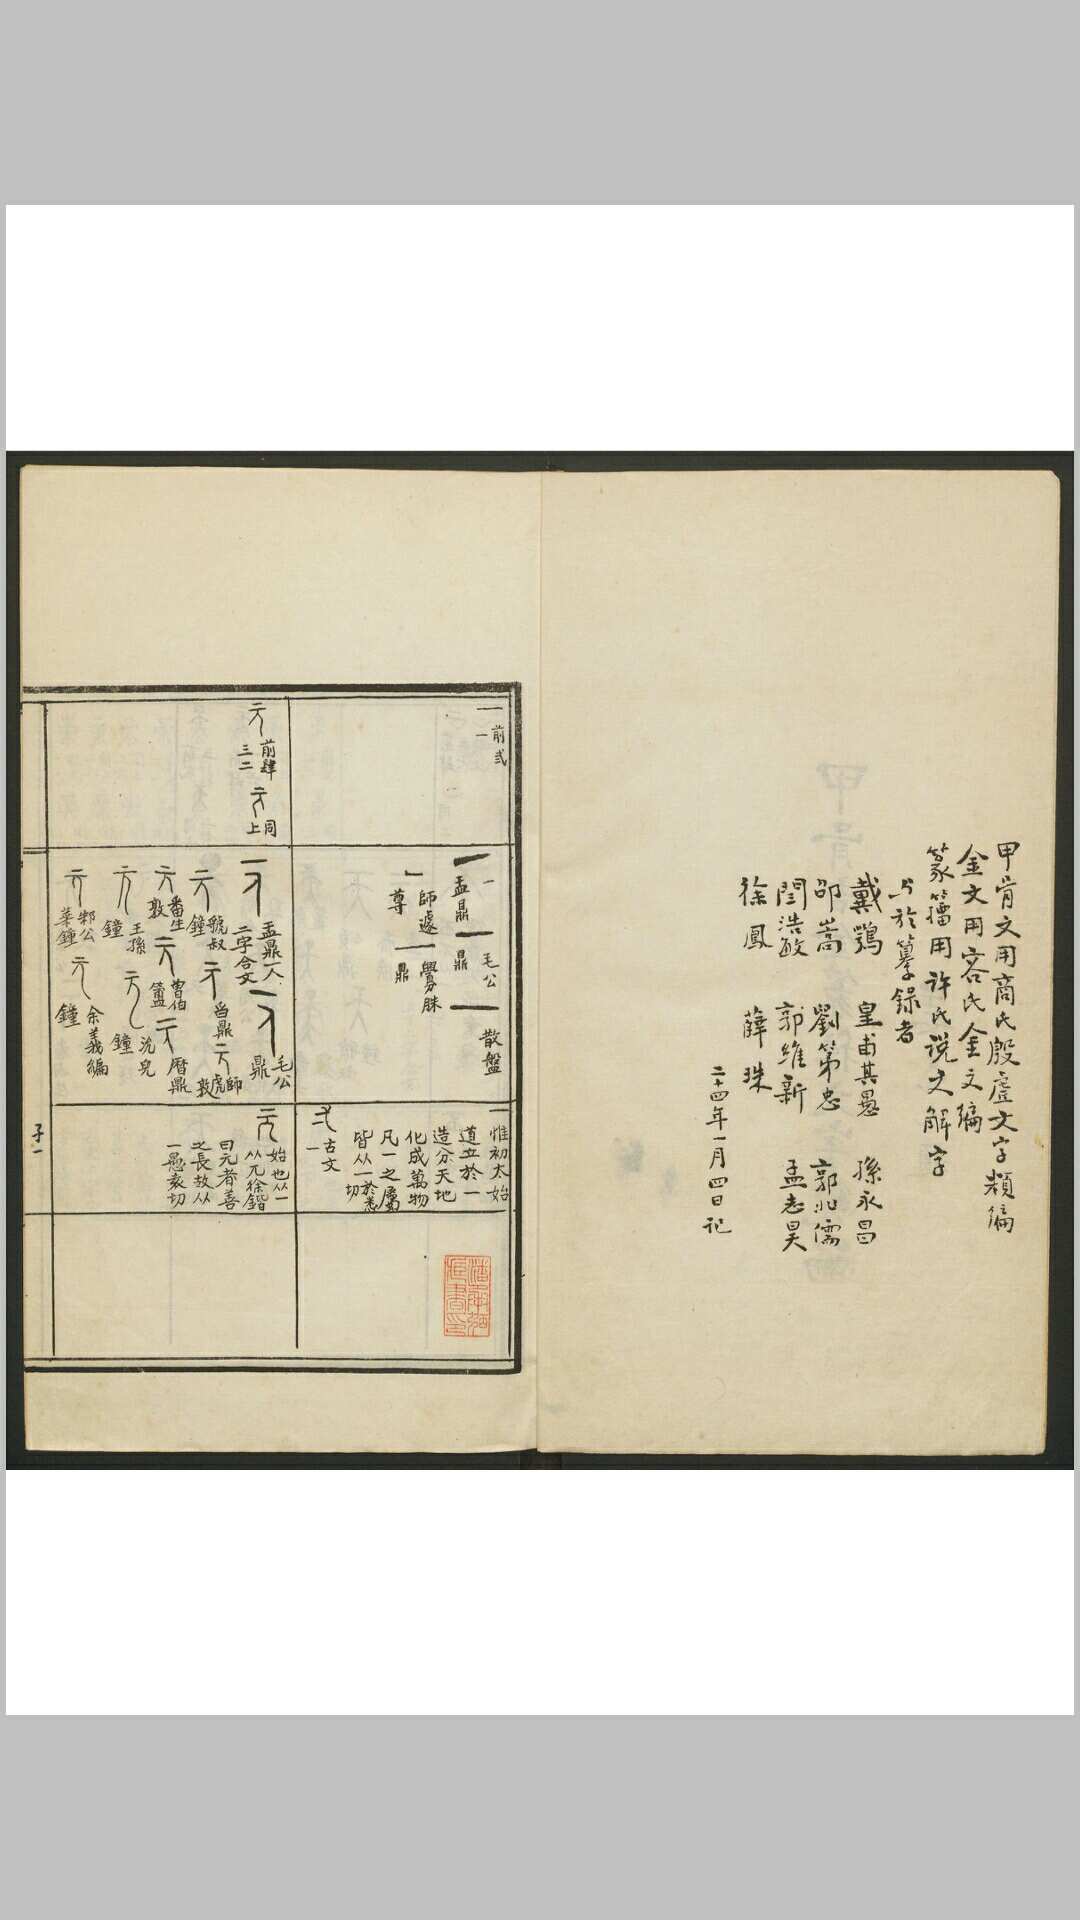 甲骨文用商氏殷虛文字類編
金文用容氏金文編
篆籀用許氏說文解字
与於纂錄者
戴鶚　皇甫其愚　孫永昌
邵嵩　劉第忠　郭兆儒
閆浩敏　郭維新　孟志昊
徐鳳　薛珠
二十四年一月四日記
一　前弐
一
元　前肆
三二
元　同
上
一　盂鼎
一　毛公
鼎
一　散盤
一　師遽
尊
一　𤔲朕
鼎
元　盂鼎一人
二字合文
元　毛公
鼎
元　虢叔
鐘
元　舀鼎
元　師
虎
敦
元　番生
敦
元　曾伯
簠
元　曆鼎
元　王孫
鐘
元　沇兒
鐘
元　邾公
華鐘
元　余義編
鐘
一　惟初太始
道立於一
造分天地
化成萬物
凡一之屬
皆从一於悉
切
弌　古文
一
元　始也从一
从兀徐鍇
曰元者善
之長故从
一愚袁切
子一